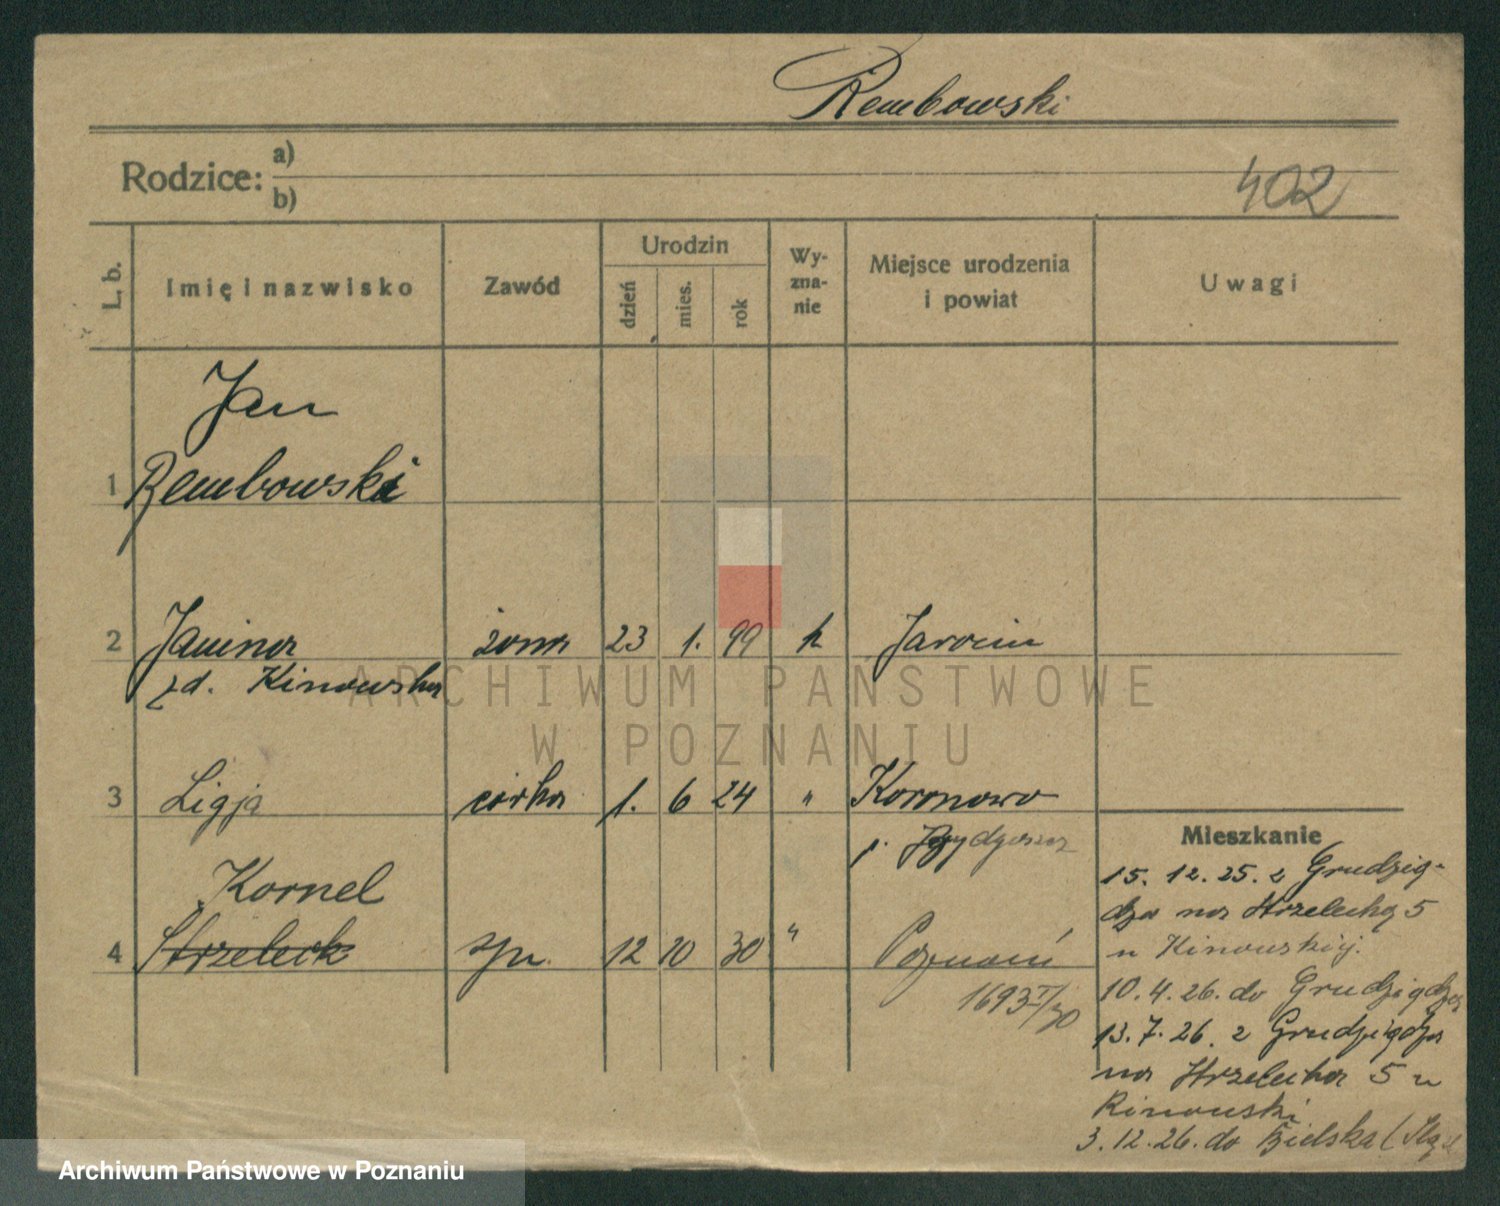 Rembowski
Rodzice: a)
b)
402
L. b. Imię i nazwisko Zawód Urodzin dzień mies. rok Wy-zna-nie Miejsce urodzenia i powiat Uwagi
Jan
1 Rembowski
2 Janina żona 23 1. 99 k Jarocin
zd. Kinowska
ARCHIWUM PAŃSTWOWE
W POZNANIU
3 Ligja córka 1. 6 24 " Koronowo
p. Bydgoszcz
Kornel
4 Strzeleck syn 12 10 30 " Poznań
1693 I/30
Mieszkanie
15. 12. 25. z Grudzią-
dza na Strzelecką 5
u Kinowskiej.
10. 4. 26. do Grudziądza
13. 7. 26. z Grudziądza
na Strzelecka 5 u
Kinowski
3. 12. 26. do Bielska (
Archiwum Państwowe w Poznaniu